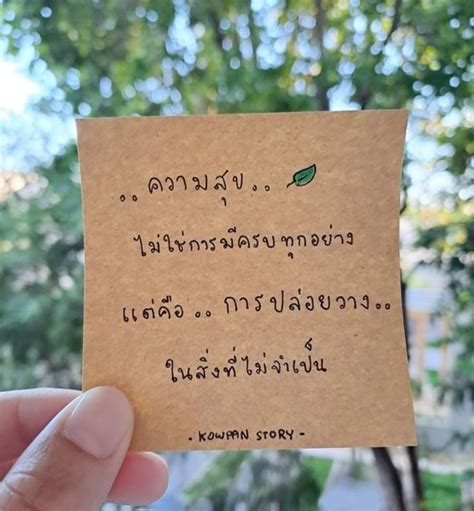 .. ความสุข..
ไม่ใช่การมีครบทุกอย่าง
แต่คือ .. การปล่อยวาง..
ในสิ่งที่ไม่จำเป็น
- KOWPAN STORY -